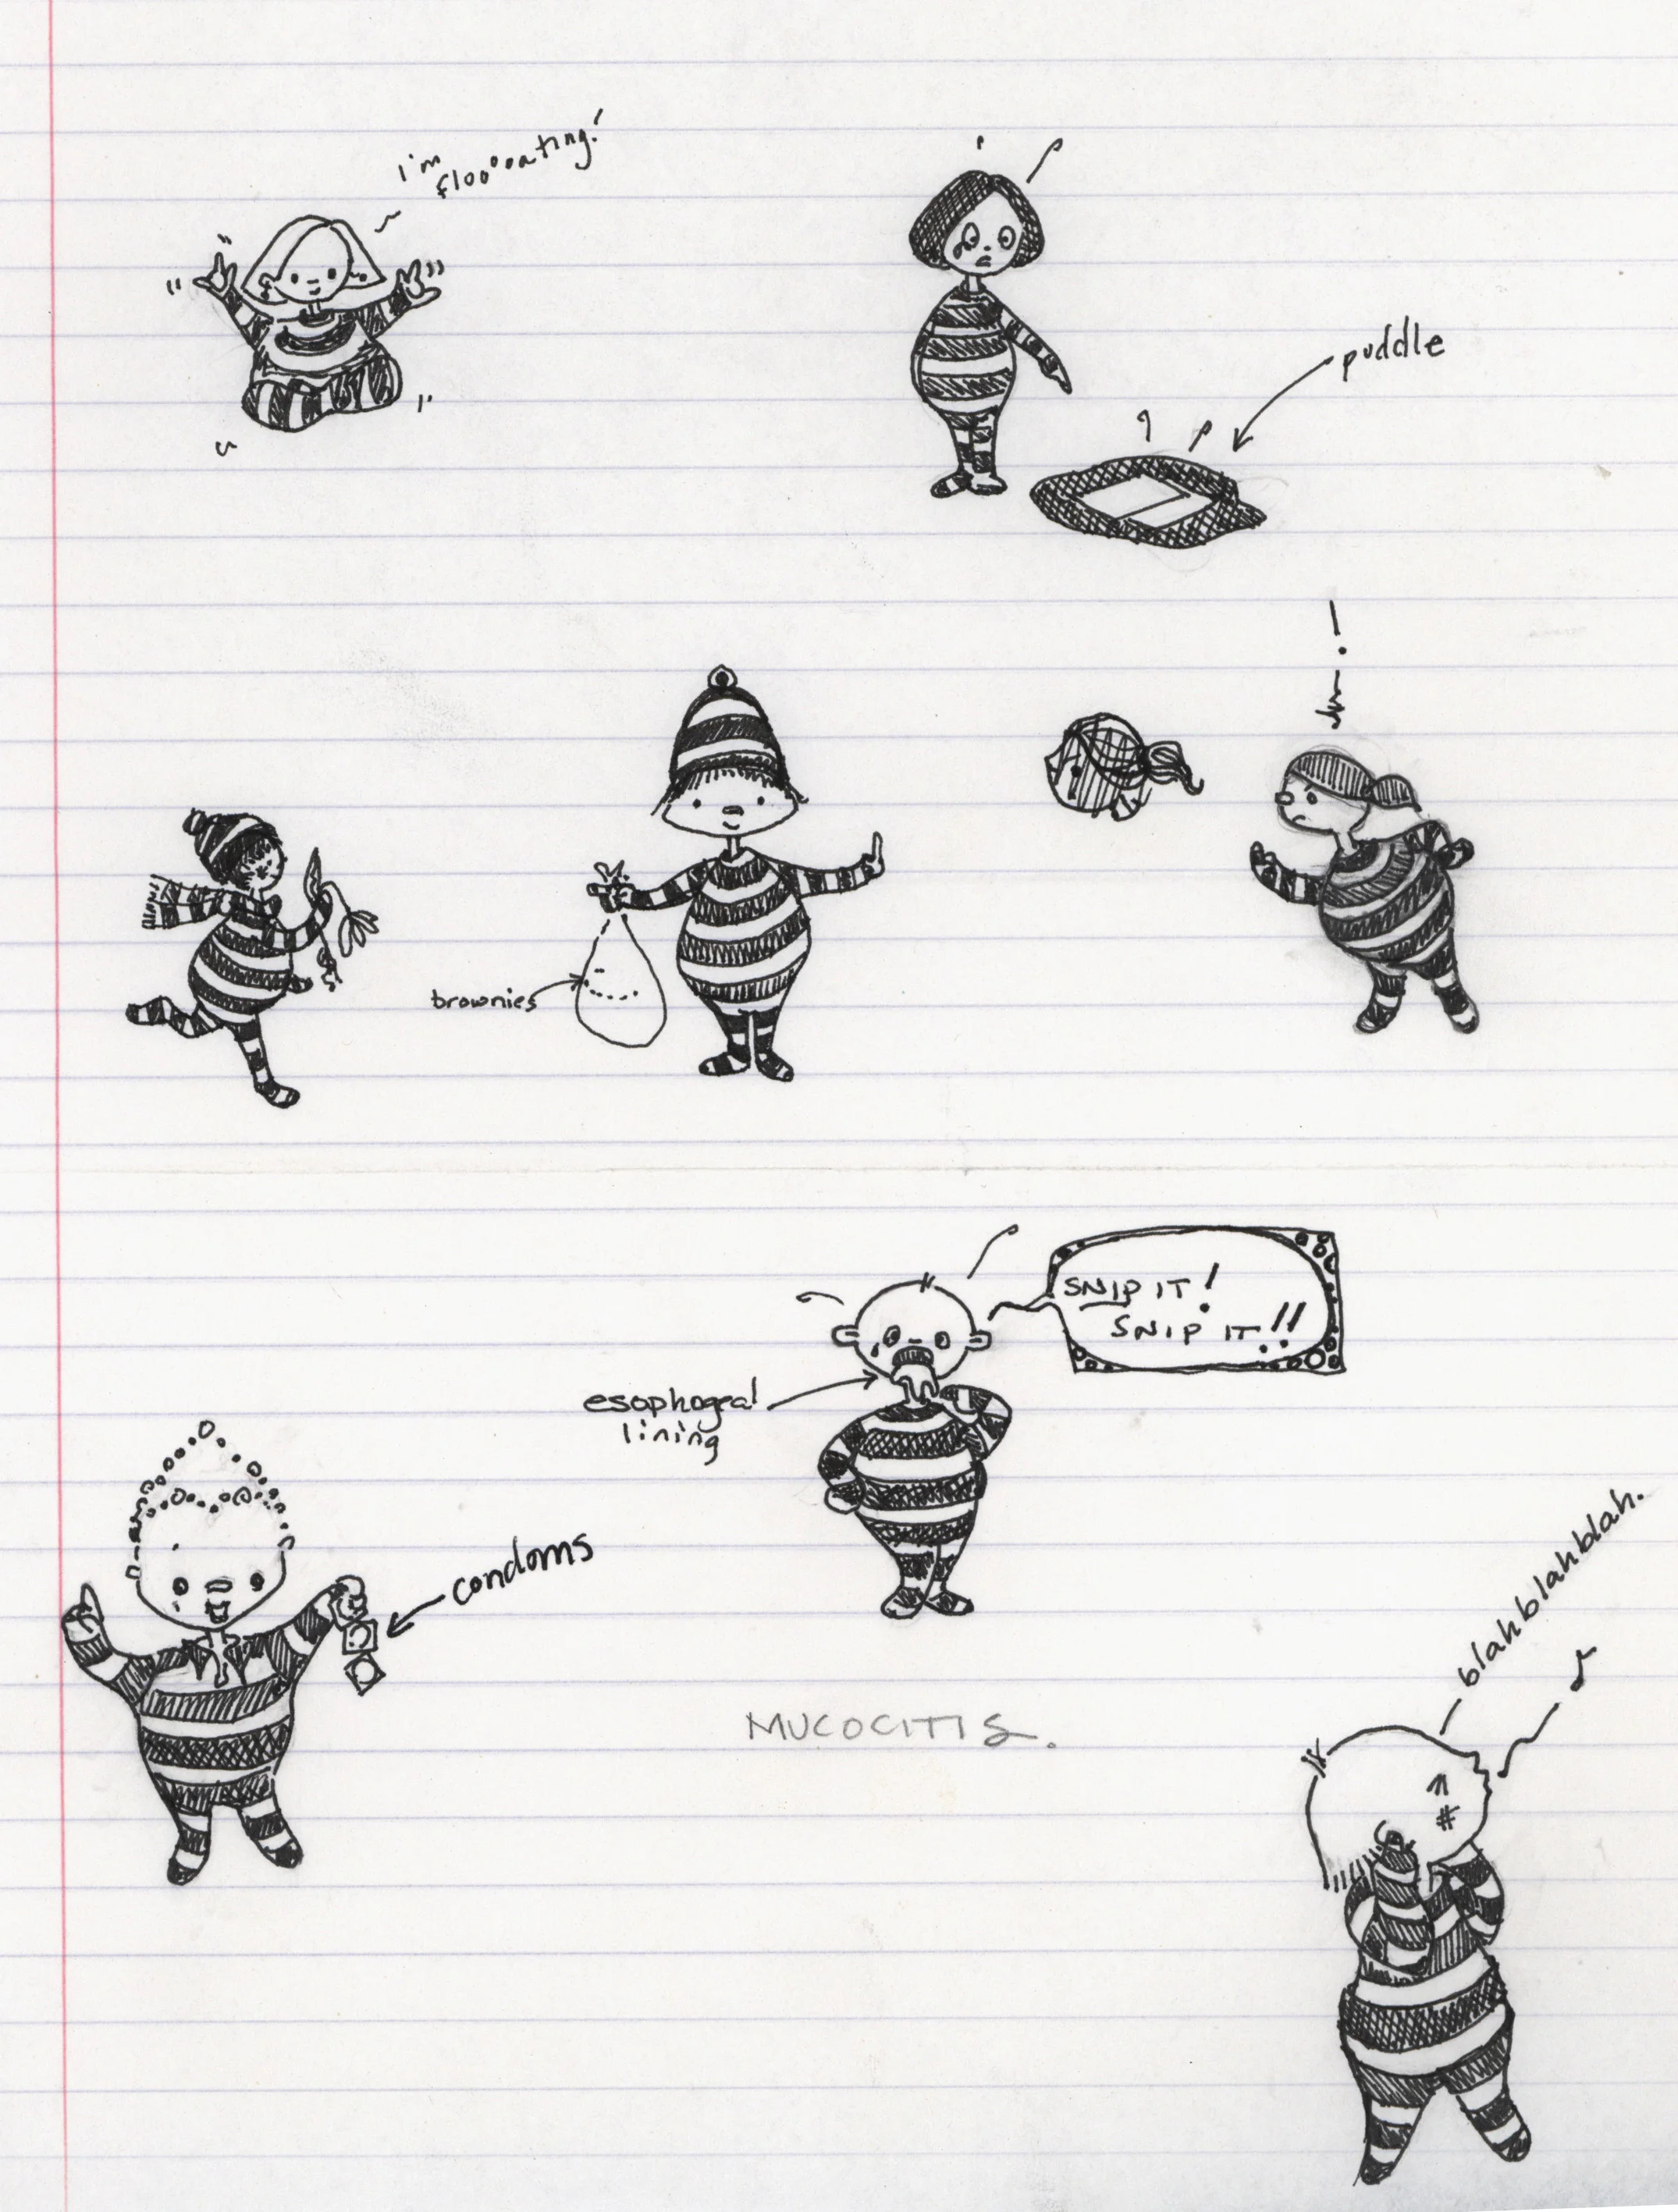 i'm
floooating!
puddle
brownies
SNIP IT!
SNIP IT!!
esophogeal
lining
condoms
blahblahblah.
MUCOCITIS.